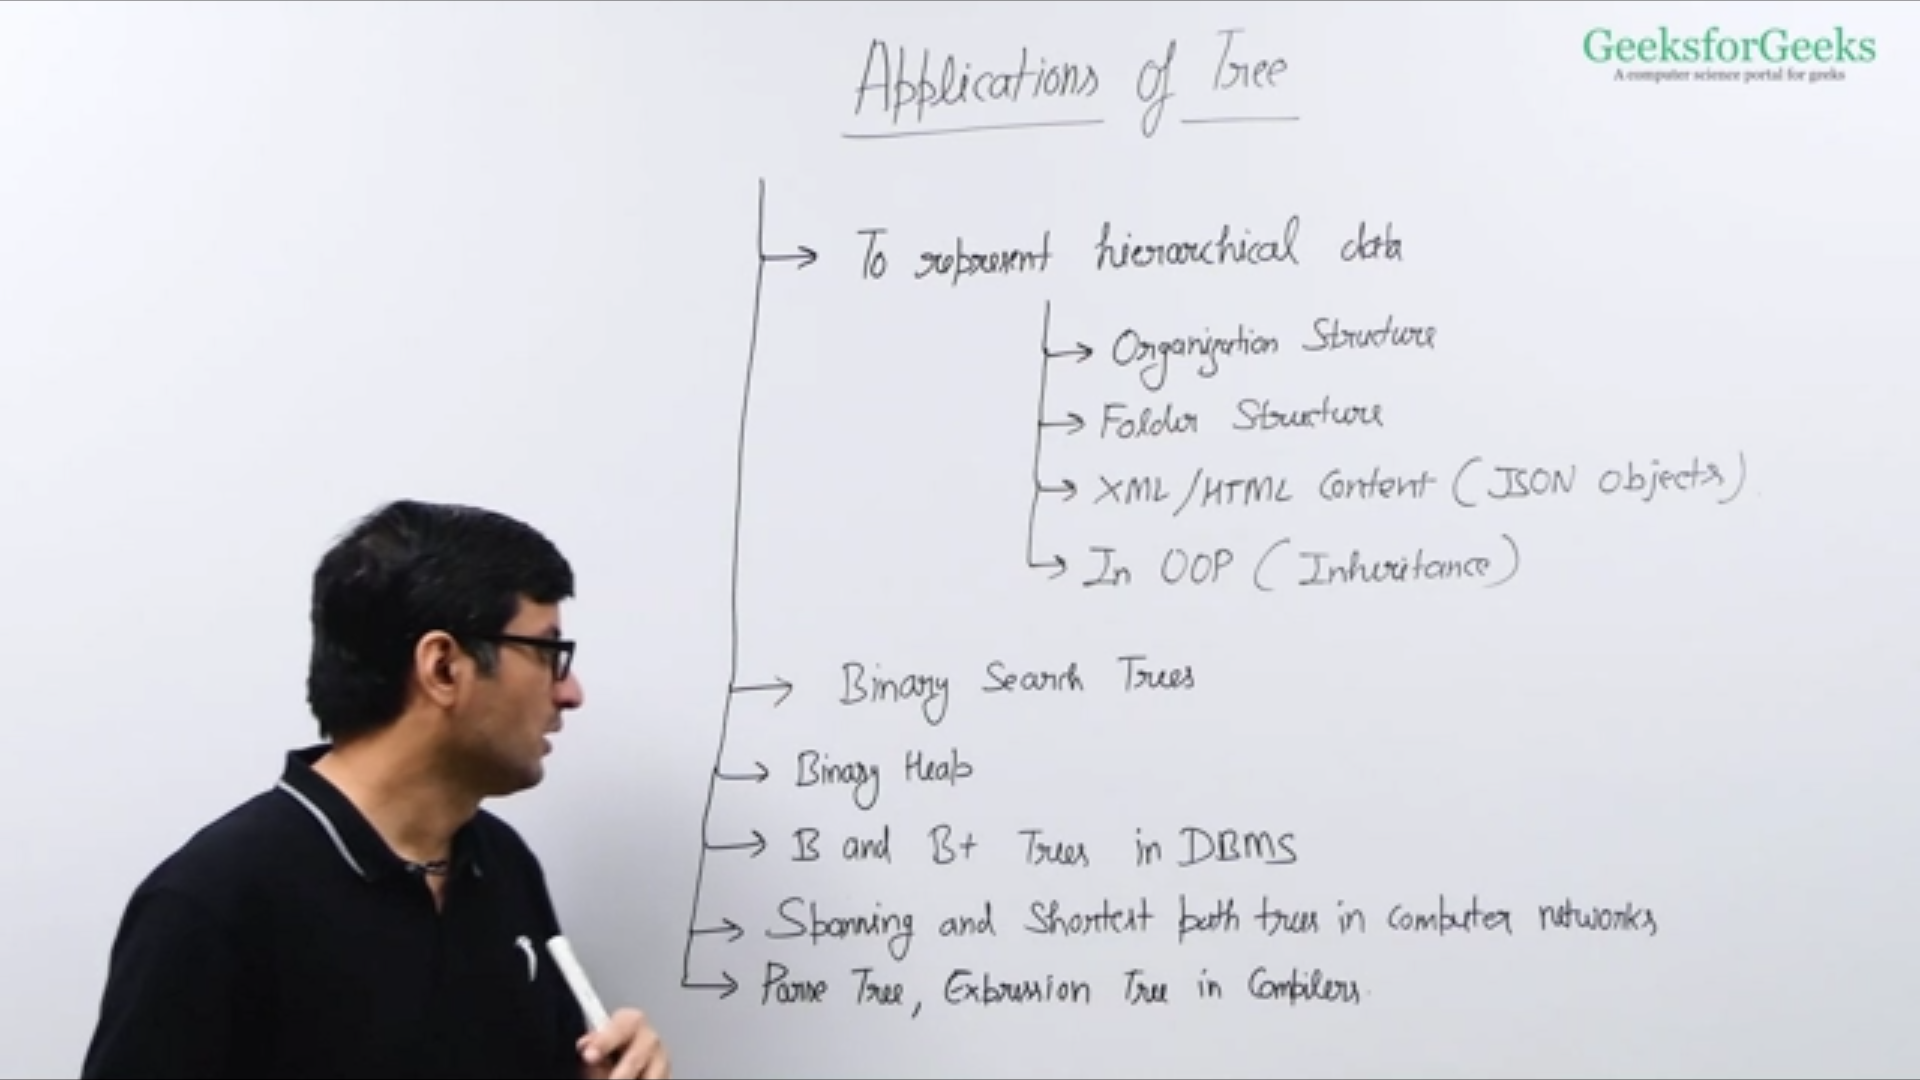 GeeksforGeeks
A computer science portal for geeks
Applications of Tree
To represent hierarchical data
Organization Structure
Folder Structure
XML/HTML Content (JSON Objects)
In OOP (Inheritance)
Binary Search Trees
Binary Heap
B and B+ Trees in DBMS
Spanning and Shortest path trees in computer networks
Parse Tree, Expression Tree in Compilers.